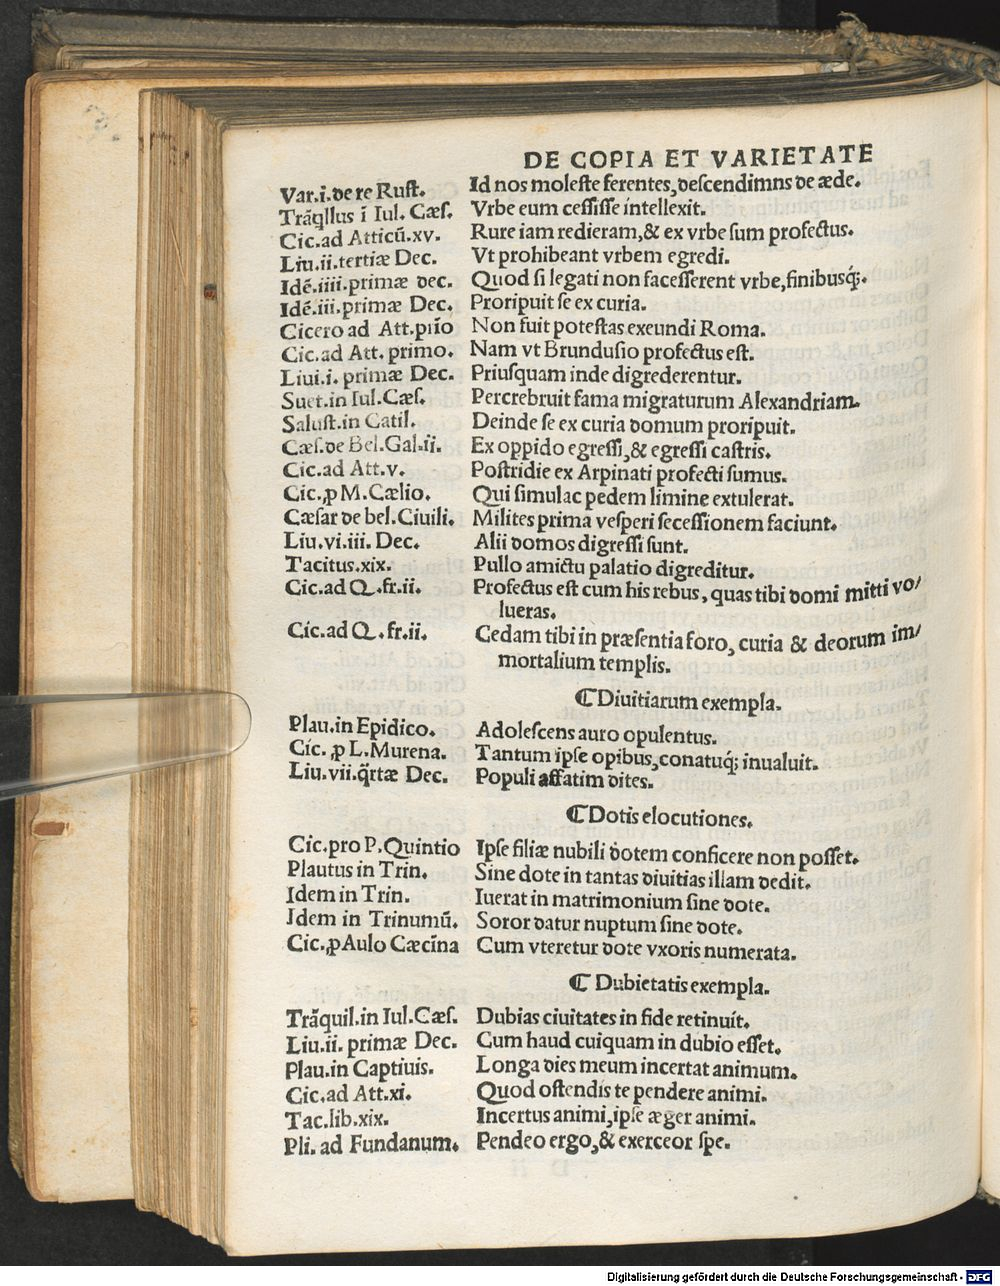 DE COPIA ET VARIETATE
Var.i.de re Rust. Id nos moleste ferentes,descendimns de æde.
Trãqllus ĩ Iul. Cæs. Vrbe eum cessisse intellexit.
Cic.ad Atticũ.xv. Rure iam redieram,& ex vrbe sum profectus.
Liu.ii.tertiæ Dec. Vt prohibeant vrbem egredi.
Idẽ.iiii.primæ dec. Quod si legati non facesserent vrbe,finibusq́;.
Idẽ.iii.primæ Dec. Proripuit se ex curia.
Cicero ad Att.prĩo Non fuit potestas exeundi Roma.
Cic.ad Att. primo. Nam vt Brundusio profectus est.
Liui.i. primæ Dec. Priusquam inde digrederentur.
Suet.in Iul.Cæs. Percrebruit fama migraturum Alexandriam.
Salust.in Catil. Deinde se ex curia domum proripuit.
Cæs.de Bel.Gal.ii. Ex oppido egressi,& egressi castris.
Cic.ad Att.v. Postridie ex Arpinati profecti sumus.
Cic.ꝓ M.Cælio. Qui simulac pedem limine extulerat.
Cæsar de bel.Ciuili. Milites prima vesperi secessionem faciunt.
Liu.vi.iii. Dec. Alii domos digressi sunt.
Tacitus.xix. Pullo amictu palatio digreditur.
Cic.ad Q.fr.ii. Profectus est cum his rebus, quas tibi domi mitti vo/
lueras.
Cic.ad Q.fr.ii. Cedam tibi in præsentia foro, curia & deorum im/
mortalium templis.
¶ Diuitiarum exempla.
Plau.in Epidico. Adolescens auro opulentus.
Cic. ꝓ L.Murena. Tantum ipse opibus,conatuq́; inualuit.
Liu.vii.q̃rtæ Dec. Populi affatim dites.
¶ Dotis elocutiones.
Cic.pro P.Quintio Ipse filiæ nubili dotem conficere non posset.
Plautus in Trin. Sine dote in tantas diuitias illam dedit.
Idem in Trin. Iuerat in matrimonium sine dote.
Idem in Trinumũ. Soror datur nuptum sine dote.
Cic.ꝓ Aulo Cæcĩna Cum vteretur dote vxoris numerata.
¶ Dubietatis exempla.
Trãquil.in Iul.Cæs. Dubias ciuitates in fide retinuit.
Liu.ii. primæ Dec. Cum haud cuiquam in dubio esset.
Plau.in Captiuis. Longa dies meum incertat animum.
Cic.ad Att.xi. Quod ostendis te pendere animi.
Tac.lib.xix. Incertus animi,ipse æger animi.
Pli. ad Fundanum. Pendeo ergo,& exerceor spe.
Digitalisierung gefördert durch die Deutsche Forschungsgemeinschaft - DFG